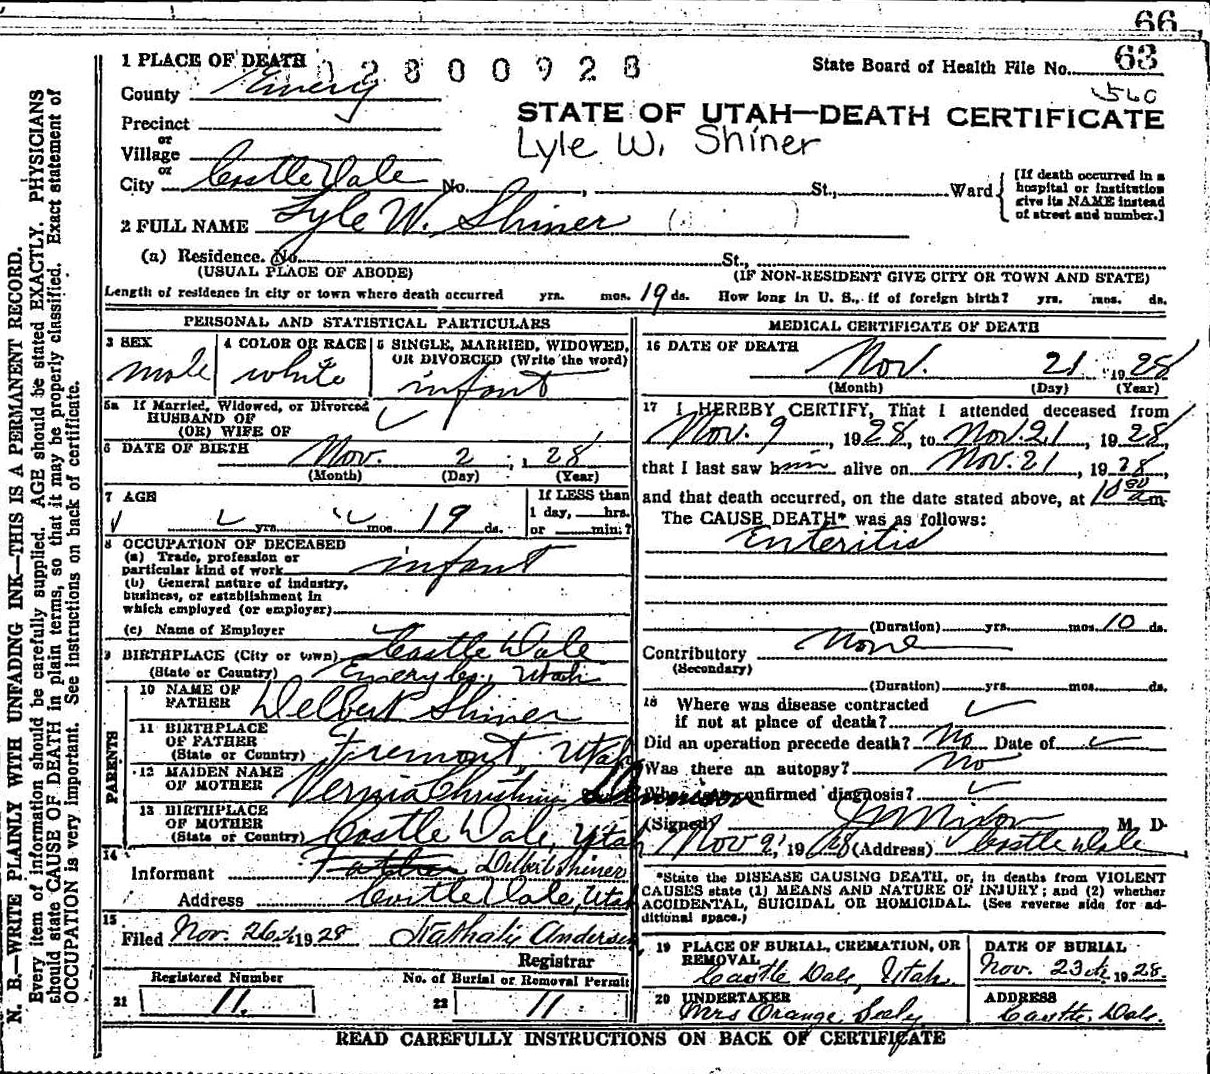 66
1 PLACE OF DEATH 02800928 State Board of Health File No. 63
County Emery 560
STATE OF UTAH—DEATH CERTIFICATE
Precinct
or
Village
Lyle W. Shiner
or
City Castle Dale No. , St., Ward
[If death occurred in a
hospital or institution
give its NAME instead
of street and number.]
2 FULL NAME Lyle W. Shiner
(a) Residence. No. St.,
(USUAL PLACE OF ABODE) (IF NON-RESIDENT GIVE CITY OR TOWN AND STATE)
Length of residence in city or town where death occurred yrs. mos. 19 ds. How long in U. S., if of foreign birth? yrs. mos. ds.
PERSONAL AND STATISTICAL PARTICULARS
3 SEX male
4 COLOR OR RACE white
5 SINGLE, MARRIED, WIDOWED,
OR DIVORCED (Write the word)
infant
5a If Married, Widowed, or Divorced
HUSBAND OF
(OR) WIFE OF
6 DATE OF BIRTH Nov. 2, 28
(Month) (Day) (Year)
7 AGE
yrs. mos. 19 ds.
If LESS than
1 day, hrs.
or min.?
8 OCCUPATION OF DECEASED
(a) Trade, profession or
particular kind of work infant
(b) General nature of industry,
business, or establishment in
which employed (or employer)
(c) Name of Employer
9 BIRTHPLACE (City or town) Castle Dale
(State or Country) Emery Co., Utah
PARENTS
10 NAME OF
FATHER Delbert Shiner
11 BIRTHPLACE
OF FATHER
(State or Country) Fremont, Utah
12 MAIDEN NAME
OF MOTHER Vernia Christina
13 BIRTHPLACE
OF MOTHER
(State or Country) Castle Dale, Utah
14
Informant Father Delbert Shiner
Address Castle Dale, Utah
15
Filed Nov. 26th 1928 Nathalie Andersen
Registrar
Registered Number No. of Burial or Removal Permit
21 11. 22 11
MEDICAL CERTIFICATE OF DEATH
16 DATE OF DEATH
Nov. 21 1928
(Month) (Day) (Year)
17 I HEREBY CERTIFY, That I attended deceased from
Nov. 9, 1928, to Nov. 21, 1928,
that I last saw him alive on Nov. 21, 1928,
and that death occurred, on the date stated above, at 10 00 am.
The CAUSE DEATH* was as follows:
Enteritis
(Duration) yrs. mos. 10 ds.
Contributory None
(Secondary)
(Duration) yrs. mos. ds.
18 Where was disease contracted
if not at place of death?
Did an operation precede death? No Date of
Was there an autopsy? No
What test confirmed diagnosis?
(Signed) M. D.
Nov 21, 1928 (Address) Castle Dale
*State the DISEASE CAUSING DEATH, or, in deaths from VIOLENT
CAUSES state (1) MEANS AND NATURE OF INJURY; and (2) whether
ACCIDENTAL, SUICIDAL OR HOMICIDAL. (See reverse side for ad-
ditional space.)
19 PLACE OF BURIAL, CREMATION, OR
REMOVAL
Castle Dale, Utah.
DATE OF BURIAL
Nov. 23rd 1928.
20 UNDERTAKER
Mrs Orange Seely
ADDRESS
Castle Dale.
READ CAREFULLY INSTRUCTIONS ON BACK OF CERTIFICATE
N. B.—WRITE PLAINLY WITH UNFADING INK—THIS IS A PERMANENT RECORD.
Every item of information should be carefully supplied. AGE should be stated EXACTLY. PHYSICIANS
should state CAUSE OF DEATH in plain terms, so that it may be properly classified. Exact statement of
OCCUPATION is very important. See instructions on back of certificate.